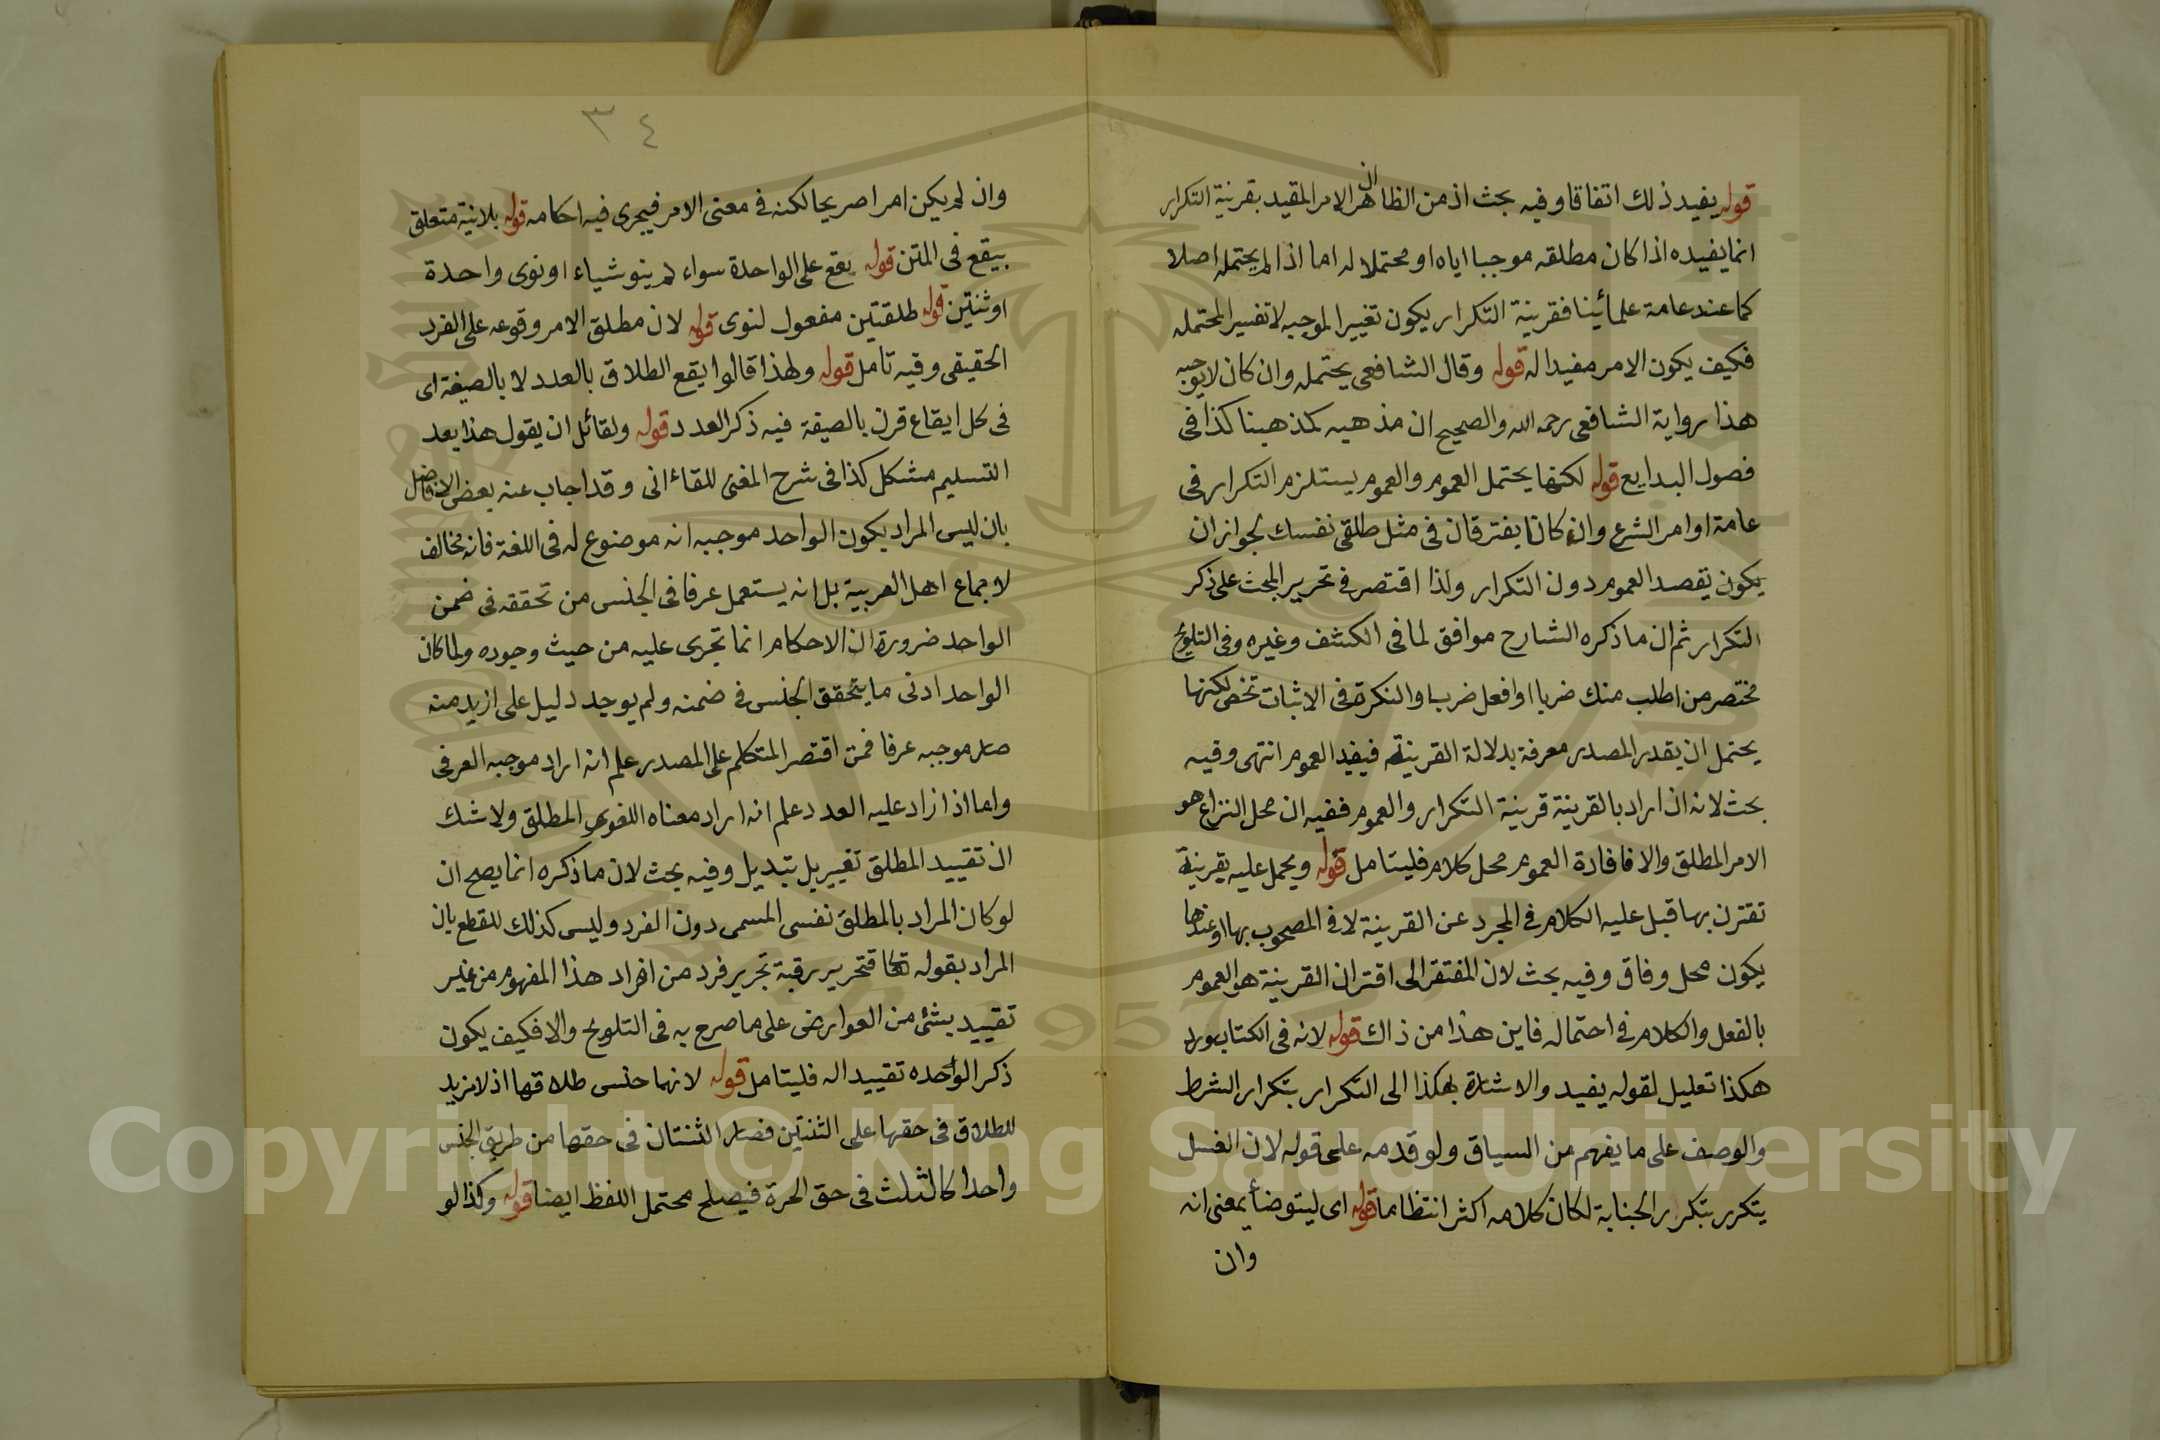 قوله يفيد ذلك اتفاقا وفيه بحث اذ من الظاهر ان الامر المقيد بقرينة التكرار
انما يفيده اذا كان مطلقه موجبا اياه او محتملا له اما اذا لم يحتمله اصلا
كما عند عامة علمائنا فقرينة التكرار يكون تغييرا لموجبه لا تفسيرا لمحتمله
فكيف يكون الامر مفيدا له قوله وقال الشافعي يحتمله وان كان لا يوجبه
هذا رواية الشافعي رحمه الله والصحيح ان مذهبه كمذهبنا كذا في
فصول البدايع قوله لكنها يحتمل العموم والعموم يستلزم التكرار في
عامة اوامر الشرع وان كانا يفترقان في مثل طلقي نفسك لجواز ان
يكون يقصد العموم دون التكرار ولذا اقتصر في تحرير المبحث على ذكر
التكرار ثم ان ما ذكره الشارح موافق لما في الكشف وغيره وفي التلويح
مختصر من اطلب منك ضربا او افعل ضربا والنكرة في الاثبات تخص لكنها
يحتمل ان يقدر المصدر معرفة بدلالة القرينة فيفيد العموم انتهى وفيه
بحث لانه ان اراد بالقرينة قرينة التكرار والعموم ففيه ان محل النزاع هو
الامر المطلق والا فافادة العموم محل كلام فليتامل قوله ويحمل عليه بقرينة
تقترن بها قيل عليه الكلام في المجرد عن القرينة لا في المصحوب بها او عندها
يكون محل وفاق وفيه بحث لان المفتقر الى اقتران القرينة هو العموم
بالفعل والكلام في احتماله فاين هذا من ذاك قوله لانه في الكتاب ورد
هكذا تعليل لقوله يفيد والاشارة بهكذا الى التكرار بتكرار الشرط
والوصف على ما يفهم من السياق ولو قدمه على قوله لان الغسل
يتكرر بتكرر الجنابة لكان كلامه اكثر انتظاما قوله اي ليتوضأ بمعنى انه
وان
٣٤
وان لم يكن امرا صريحا لكنه في معنى الامر فيجري فيه احكامه قوله بلا نية متعلق
بيقع في المتن قوله يقع على الواحدة سواء لم ينو شياء او نوى واحدة
او ثنتين قوله طلقتين مفعول لنوى قوله لان مطلق الامر وقوعه على الفرد
الحقيقي وفيه تامل قوله ولهذا قالوا يقع الطلاق بالعدد لا بالصيغة اي
في كل ايقاع قرن بالصيغة فيه ذكر العدد قوله ولقائل ان يقول هذا بعد
التسليم مشكل كذا في شرح المغني للقاءاني وقد اجاب عنه بعض الافاضل
بان ليس المراد يكون الواحد موجبه انه موضوع له في اللغة فانه مخالف
لاجماع اهل العربية بل انه يستعمل عرفا في الجنس من تحققه في ضمن
الواحد ضرورة ان الاحكام انما تجري عليه من حيث وجوده ولما كان
الواحد ادنى ما يتحقق الجنس في ضمنه ولم يوجد دليل على ازيد منه
صار موجبه عرفا فمن اقتصر المتكلم على المصدر علم انه اراد موجبه العرفي
واما اذا زاد عليه العدد علم انه اراد معناه اللغوي المطلق ولا شك
ان تقييد المطلق تغيير بل تبديل وفيه بحث لان ما ذكره انما يصح ان
لو كان المراد بالمطلق نفس المسمى دون الفرد وليس كذلك للقطع بان
المراد بقوله تعا فتحرير رقبة تحرير فرد من افراد هذا المفهوم من غير
تقييد بشئ من العوارض على ما صرح به في التلويح والا فكيف يكون
ذكر الواحده تقييدا له فليتامل قوله لانهما جنس طلاقها اذ لا مزيد
للطلاق في حقها على الثنتين فصار الثنتان في حقها من طريق الجنس
واحدا كالثلث في حق الحرة فيصلح محتمل اللفظ ايضا قوله وكذا لو
1957
Copyright © King Saud University